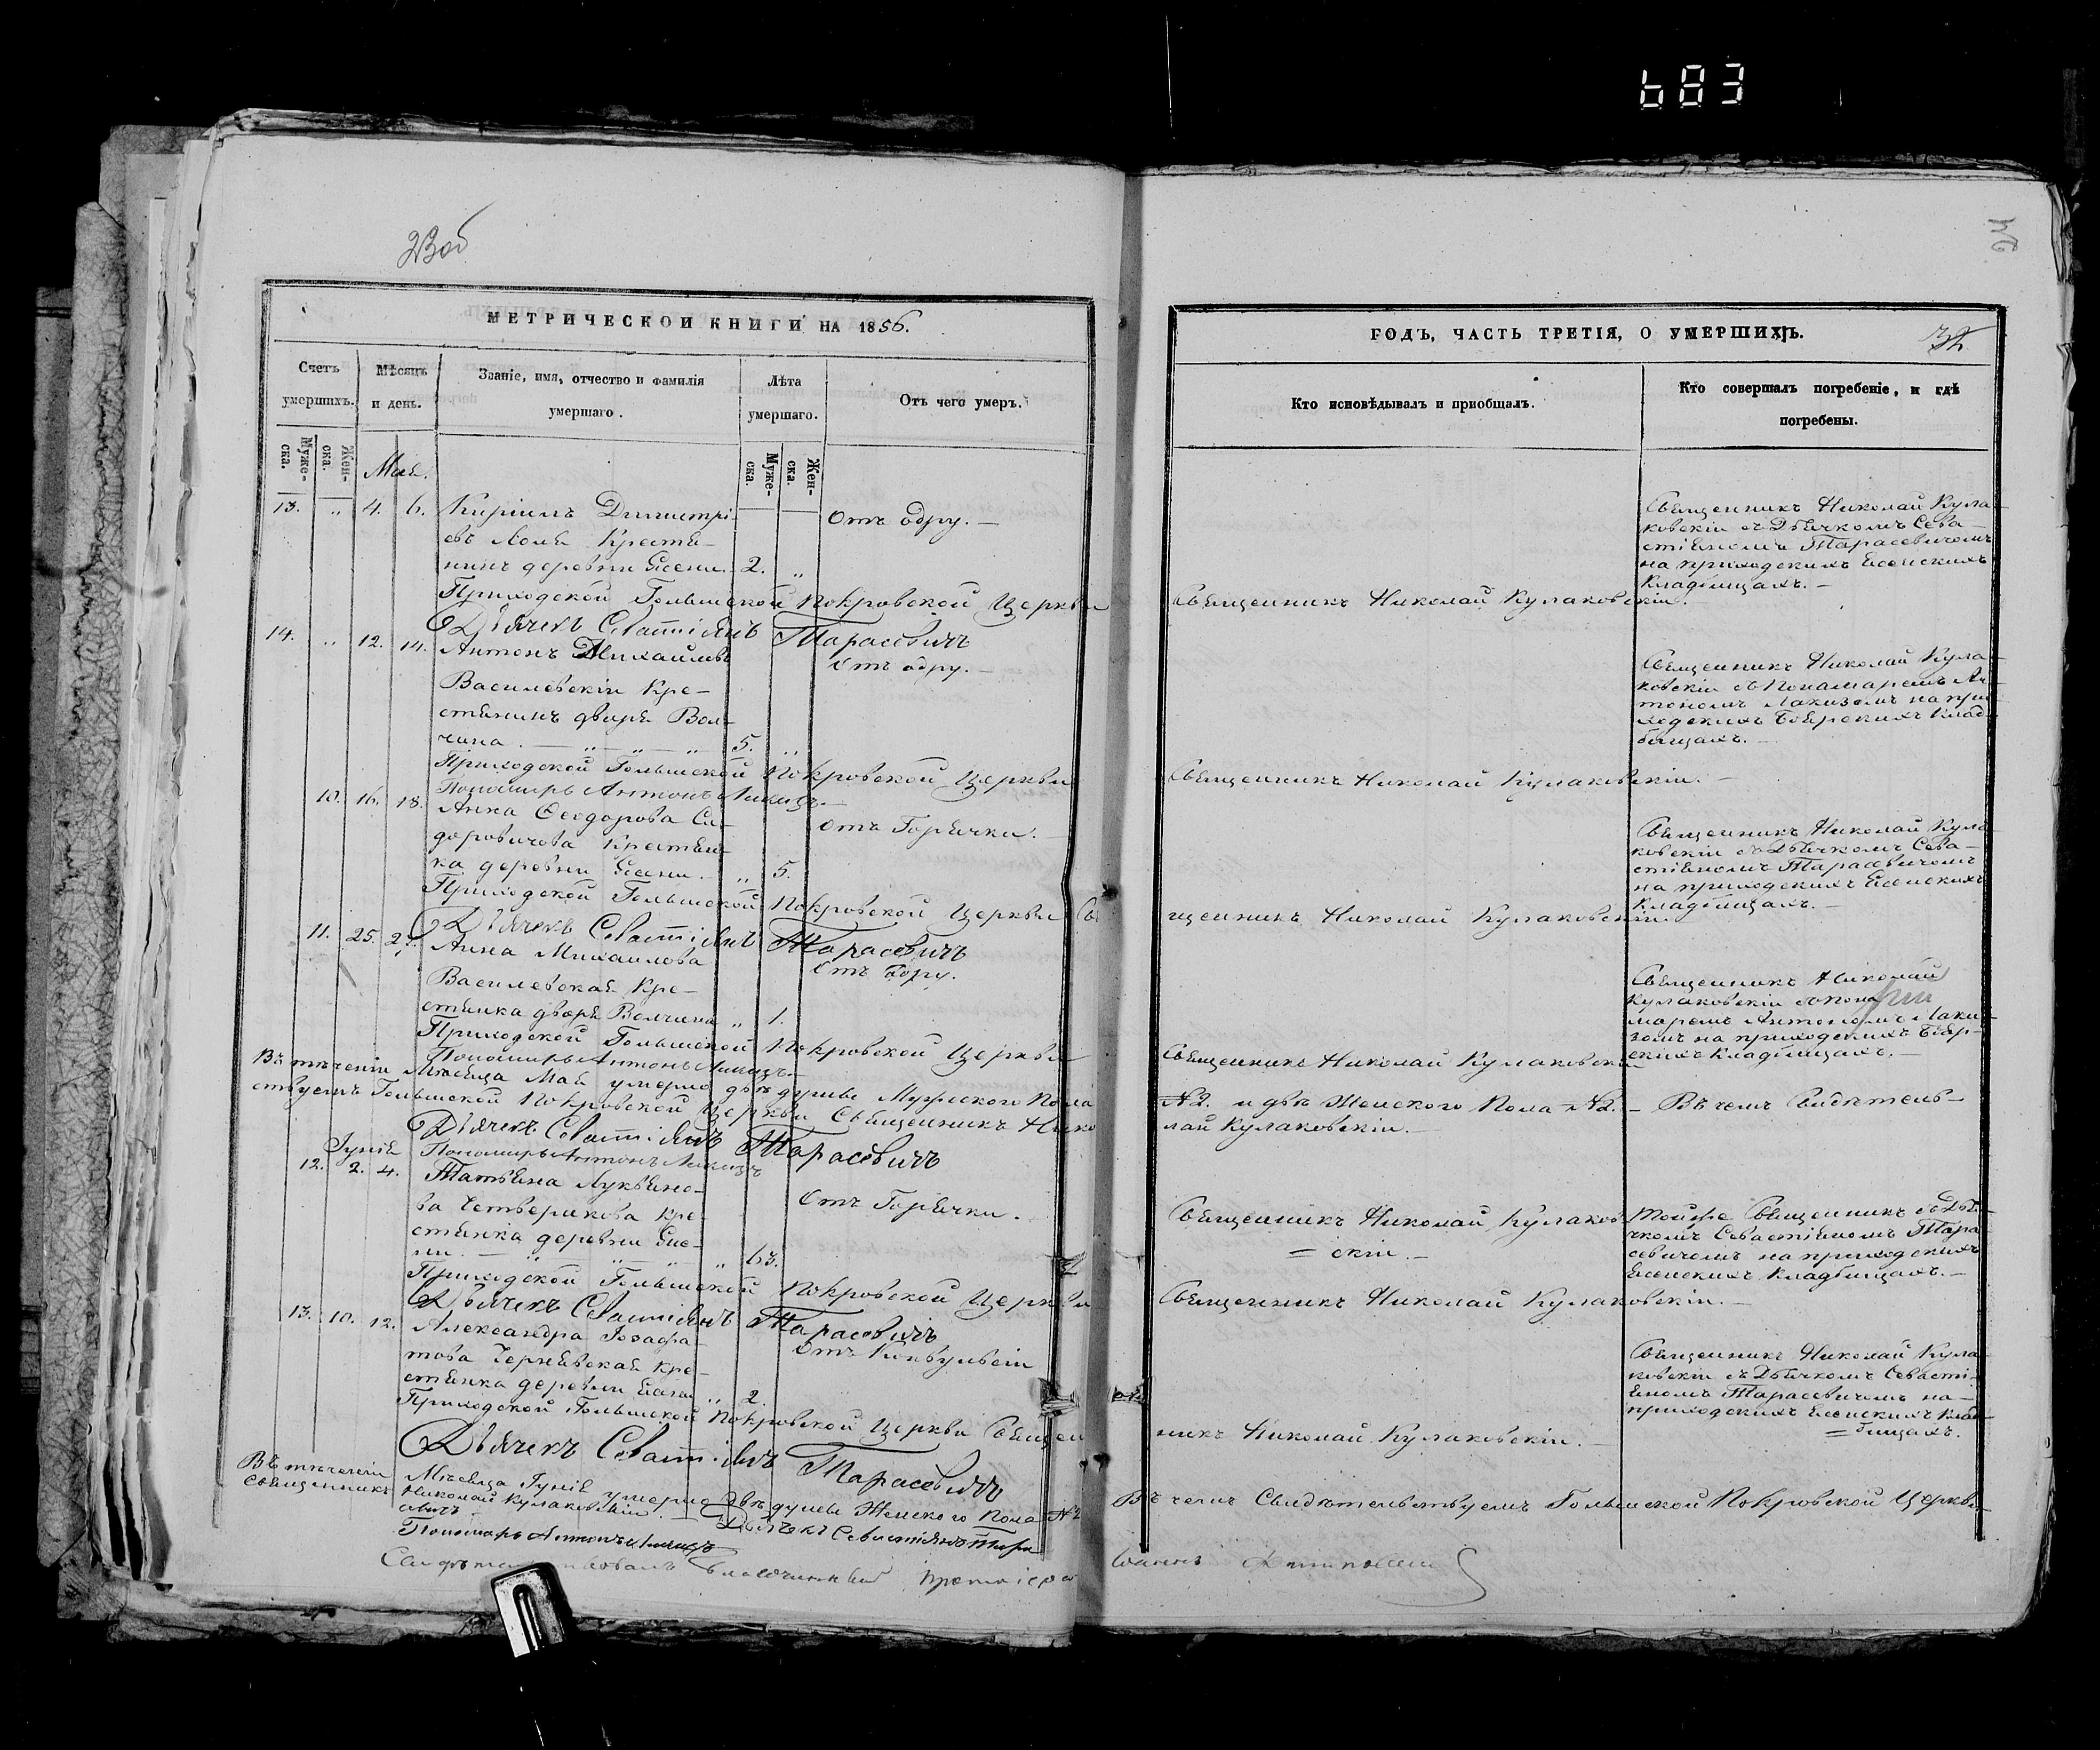 683
23об
32
МЕТРИЧЕСКОЙ КНИГИ НА 1856.
ГОДЪ, ЧАСТЬ ТРЕТІЯ, О УМЕРШИХЪ.
Счетъ умершихъ.
Мѣсяцъ и день.
Званіе, имя, отчество и фамилія умершаго.
Лѣта умершаго.
Отъ чего умеръ.
Кто исповѣдывалъ и приобщалъ.
Кто совершалъ погребеніе, и гдѣ погребены.
Муже-ска.
Жен-ска.
Муже-ска.
Жен-ска.
Мая.
13. „ 4. 6. Кирилъ Димитрі-
евъ Крестья-
нинъ деревни Ясени. 2. „
Отъ одру.
Священникъ Николай Кула-
ковскій съ Дьячкомъ Сева-
стіяномъ Тарасевичомъ
на приходскихъ Ясенскихъ
Кладбищахъ.
Приходской Голышской Покровской Церкви
Священникъ Николай Кулаковскій.
Дьячекъ Севастіянъ Тарасевичъ
14. „ 12. 14. Антонъ Михайловъ
Василевскій Кре-
стьянинъ двора Вол-
чина. 5. „
Отъ одру.
Священникъ Николай Кула-
ковскій съ Понамаремъ Ан-
тономъ на при-
ходскихъ Боярскихъ Клад-
бищахъ.
Приходской Голышской Покровской Церкви
Священникъ Николай Кулаковскій.
Пономарь Антонъ
10. 16. 18. Анна Ѳеодорова Си-
доровичова Крестьян-
ка деревни Ясени. „ 5.
Отъ Горячки.
Священникъ Николай Кула-
ковскій съ Дьячкомъ Сева-
стіяномъ Тарасевичомъ
на приходскихъ Ясенскихъ
Кладбищахъ.
Приходской Голышской Покровской Церкви Свя
щенникъ Николай Кулаковскій.
Дьячекъ Севастіянъ Тарасевичъ
11. 25. 27. Анна Михаилова
Василевская Кре-
стьянка двора Волчина „ 1.
Отъ одру.
Священникъ Николай
Кулаковскій съ Пона-
маремъ Антономъ
на приходскихъ Бояр-
скихъ Кладбищахъ.
Приходской Голышской Покровской Церкви
Священникъ Николай Кулаковскій
Пономарь Антонъ
Въ теченіи Мѣсяца Мая умерло двѣ душы Мужескаго Пола
№2. и двѣ Женского Пола №2. Въ чемъ Свидѣтель-
ствуемъ Голышской Покровской Церкви Священникъ Нико
лай Кулаковскій.
Дьячекъ Севастіянъ Тарасевичъ
Пономарь Антонъ
Іуніѣ
12. 2. 4. Татьяна Лукьяно-
ва Четверикова Кре-
стьянка деревни Ясе-
ни. „ 63.
Отъ Горячки.
Священникъ Николай Кулаков
= скій.
Тойже Священникъ съ Дья-
чкомъ Севастіяномъ Тара-
севичомъ на приходскихъ
Ясенскихъ Кладбищахъ.
Приходской Голышской Покровской Церкви
Священникъ Николай Кулаковскій.
Дьячекъ Севастіянъ Тарасевичъ
13. 10. 12. Александра Іозафа-
това Чернявская Кре-
стьянка деревни Ясени „ 2.
Отъ Конвульсіи
Священникъ Николай Кула-
ковскій съ Дьячкомъ Севасті-
яномъ Тарасевичомъ на
приходскихъ Ясенскихъ Клад-
= бищахъ.
Приходской Голышской Покровской Церкви Священ
никъ Николай Кулаковскій.
Дьячекъ Севастіянъ Тарасевичъ
Въ теченіи Мѣсяца Іуніѣ умерло двѣ душы Женского Пола №2
Въ чемъ Свидѣтельствуемъ Голышской Покровской Церкви
Священникъ Николай Кулаковскій. Дьячекъ Севастіянъ Тарасе
вичъ
Пономарь Антонъ
Благочинный Протоіерей